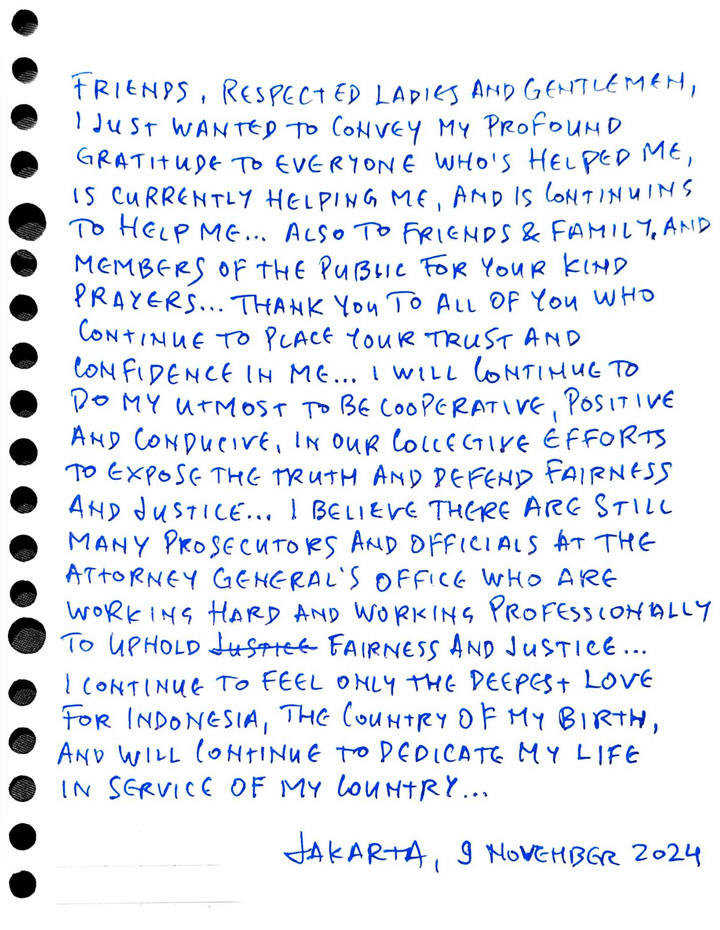 FRIENDS, RESPECTED LADIES AND GENTLEMEN,
I JUST WANTED TO CONVEY MY PROFOUND
GRATITUDE TO EVERYONE WHO'S HELPED ME,
IS CURRENTLY HELPING ME, AND IS CONTINUING
TO HELP ME... ALSO TO FRIENDS & FAMILY, AND
MEMBERS OF THE PUBLIC FOR YOUR KIND
PRAYERS... THANK YOU TO ALL OF YOU WHO
CONTINUE TO PLACE YOUR TRUST AND
CONFIDENCE IN ME... I WILL CONTINUE TO
DO MY UTMOST TO BE COOPERATIVE, POSITIVE
AND CONDUCIVE, IN OUR COLLECTIVE EFFORTS
TO EXPOSE THE TRUTH AND DEFEND FAIRNESS
AND JUSTICE... I BELIEVE THERE ARE STILL
MANY PROSECUTORS AND OFFICIALS AT THE
ATTORNEY GENERAL'S OFFICE WHO ARE
WORKING HARD AND WORKING PROFESSIONALLY
TO UPHOLD JUSTICE FAIRNESS AND JUSTICE...
I CONTINUE TO FEEL ONLY THE DEEPEST LOVE
FOR INDONESIA, THE COUNTRY OF MY BIRTH,
AND WILL CONTINUE TO DEDICATE MY LIFE
IN SERVICE OF MY COUNTRY...
JAKARTA, 9 NOVEMBER 2024